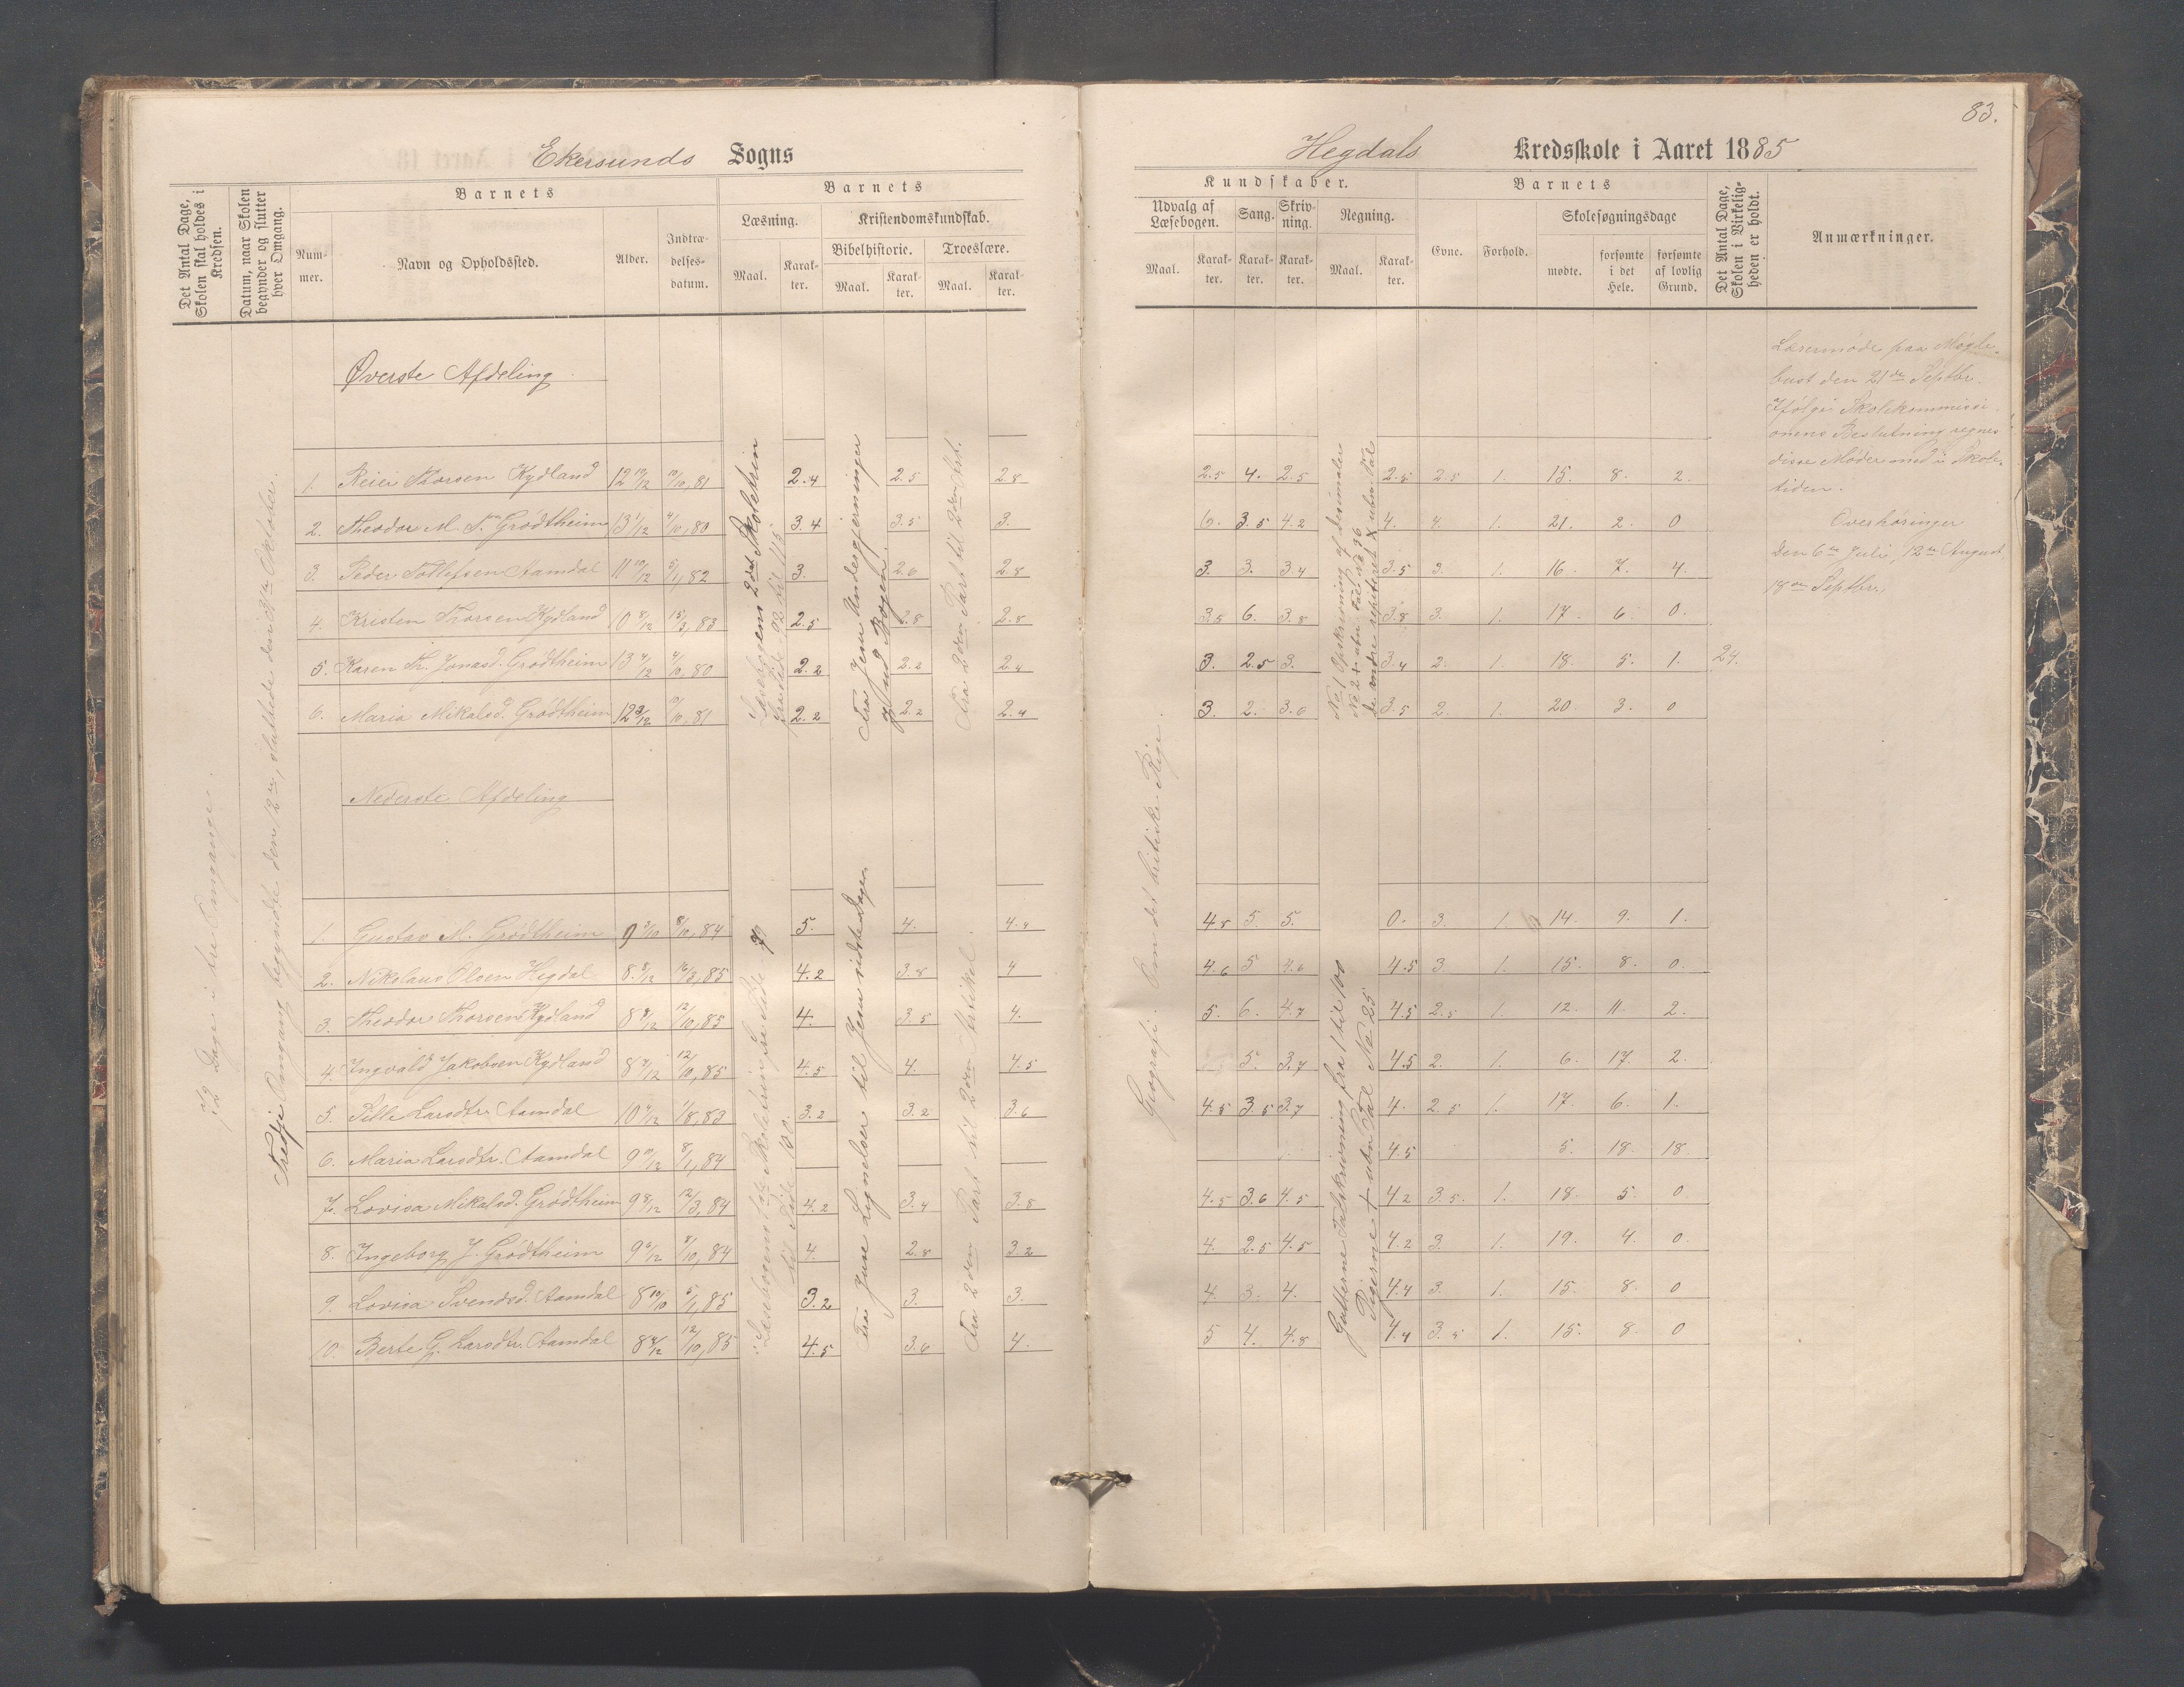 83.
Ekersunds Sogns
Hegdals Kredsskole i Aaret 1885
Det Antal Dage, Skolen skal holdes i Kredsen.
Datum, naar Skolen begynder og slutter hver Omgang.
Barnets
Nummer.
Navn og Opholdssted.
Alder.
Indtrædelsesdatum.
Barnets
Læsning.
Maal.
Karakter.
Kristendomskundskab.
Bibelhistorie.
Maal.
Karakter.
Troeslære.
Maal.
Karakter.
Kundskaber.
Udvalg af Læsebogen.
Maal.
Karakter.
Sang.
Karakter.
Skrivning.
Karakter.
Regning.
Maal.
Karakter.
Barnets
Evne.
Forhold.
Skolesøgningsdage
mødte.
forsømte i det Hele.
forsømte af lovlig Grund.
Det Antal Dage, Skolen i Virkeligheden er holdt.
Anmærkninger.
72 Dage i tre Omgange.
Tredje Omgang begyndte den 12te, sluttede den 31te Oktober.
Øverste Afdeling
1. Reier Thorsen Kydland 12 10/12 10/10, 81 2.4 2.5 2.8 2.5 4. 2.5 2.8 2.5 1. 15. 8. 2.
2. Theodor M. S. Grødtheim 13 1/12 4/10, 80 3.4 3.5 3. 6. 3.5 4.2 4. 4. 1. 21. 2. 0
3. Peder Todlefsen Aamdal 11 10/12 9/1, 82 3. 2.6 2.8 3. 3. 3.4 3.5 3. 1. 16. 7. 4.
4. Kristen Thorsen Kydland 10 8/12 15/3, 83 2.5 2.8 2.8 3.5 6. 3.8 3.8 3. 1. 17. 6. 0.
5. Karen Th. Jonasd. Grødtheim 13 4/12 4/10, 80 2.2 2.2 2.4 3. 2.5 3. 3.4 2. 1. 18. 5. 1. 24.
6. Maria Mikalsd. Grødtheim 12 3/12 10/10, 81 2.2 2.2 2.4 3. 2. 3.6 3.5 2. 1. 20. 3. 0
Læsebogens 2det Skoletrin
fra Side 92 til 115
Fra Jesu Undergjerninger
og ud Bogen.
Fra 2den Part til 2den Art.
No 1 Opskrivning af Desimaler
Geografi. Om det britiske Rige.
Læsermøde paa Møgle-
bust den 21de Septbr.
Ifølge Skolekommissi-
onens Beslutning regnes
disse Møder med i Skole-
tiden.
Overhøringer
Den 6te Juli, 12te August,
18de Septbr.
Nederste Afdeling
1. Gustav M. Grødtheim 9 3/10 8/10, 84 5. 4. 4.4 4.8 5. 5. 0. 3. 1. 14. 9. 1.
2. Nikolaus Olsen Hegdal 8 8/12 16/3, 85 4.2 3.8 4 4.6 5 4.6 4.5 3 1. 15. 8. 0.
3. Theodor Thorsen Kydland 8 9/12 12/10, 85 4. 3.5 4. 5. 6. 4.7 4.5 2.5 1. 12. 11. 2.
4. Ingvald Jakobsen Kydland 8 7/12 12/10, 85 4.5 4. 4.5 5. 3.7 4.5 2. 1. 6. 17. 2.
5. Pille Larsdtr. Aamdal 10 9/12 1/8, 83 3.2 3.2 3.6 4.5 3.5 3.7 4. 2.5 1. 17. 6. 1.
6. Maria Larsdtr. Aamdal 9 10/12 8/1, 84 4.5 5. 18. 18
7. Lovisa Mikalsd. Grødtheim 9 8/12 12/3, 84 4.2 3.4 3.8 4.5 3.6 4.5 4.2 3.5. 1. 18. 5. 0
8. Ingeborg J. Grødtheim 9 6/12 8/10, 84 4. 2.8 3.2 4. 2.5 4.5 4.2 3. 1. 19. 4. 0.
9. Lovisa Svendsd. Aamdal 8 10/10 5/1, 85 3.2 3. 3. 4. 3. 4. 4.4 3. 1. 15. 8. 0
10. Berte G. Larsdtr. Aamdal 8 4/12 12/10, 85 4.5 3.6 4. 5 4. 4.8 4.4 3.5 1. 15. 8. 0
Læsebogens 1ste Skoletrin fra Side 79
til Side 100.
Fra Jesu Lignelser til Jesu sidste Dage.
Fra 2den Part til 2den Artikel.
Gutterne Talskrivning fra 1 til 100
Pigerne + ubn. Tal No 25